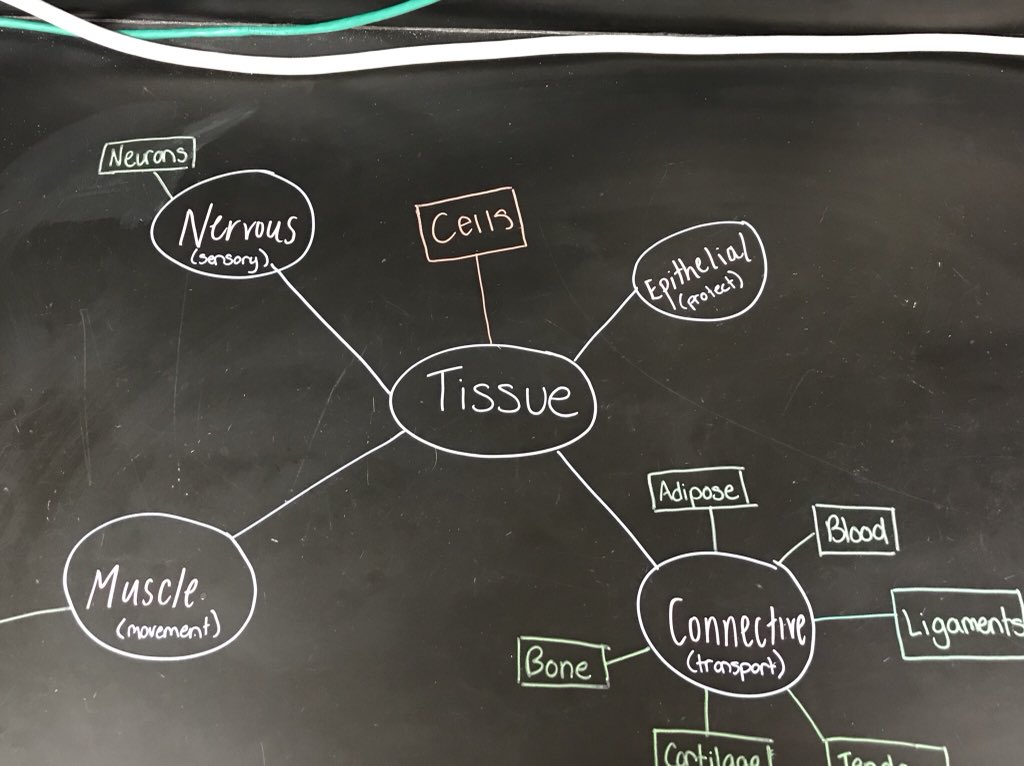 Neurons
Nervous
(sensory)
Cells
Epithelial
(protect)
Tissue
Adipose
Blood
Muscle
(movement)
Connective
(transport)
Ligaments
Bone
Cartilage